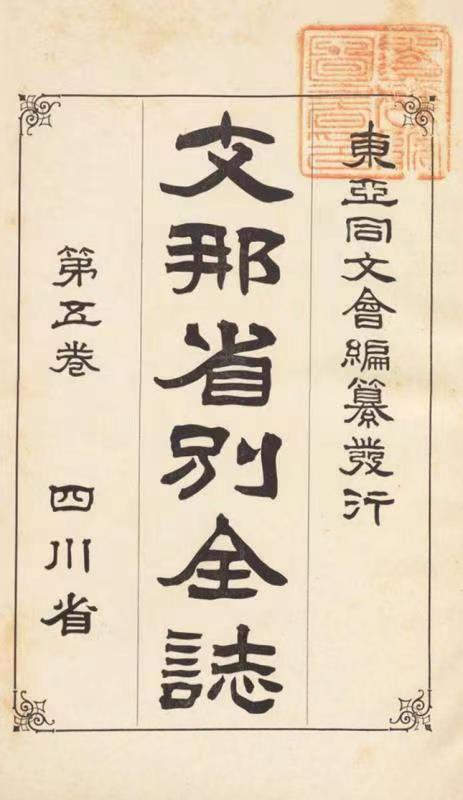 東亞同文會編纂發行
支那省別全誌
第五卷 四川省